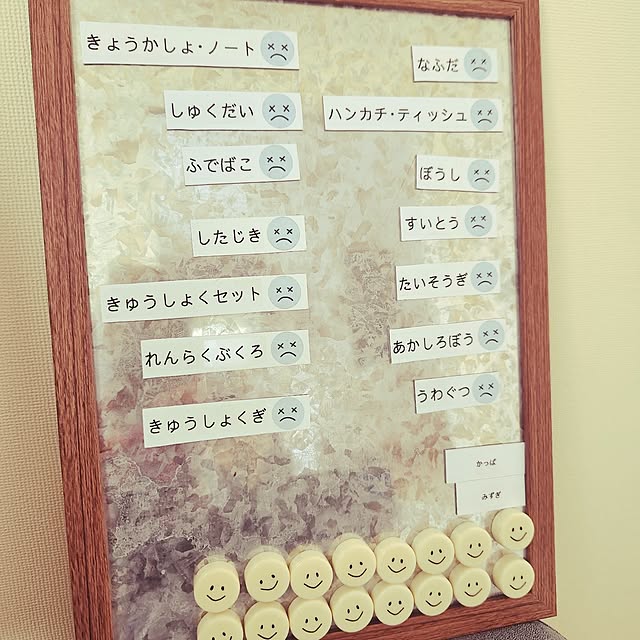 きょうかしょ・ノート
しゅくだい
ふでばこ
したじき
きゅうしょくセット
れんらくぶくろ
きゅうしょくぎ
なふだ
ハンカチ・ティッシュ
ぼうし
すいとう
たいそうぎ
あかしろぼう
うわぐつ
かっぱ
みずぎ